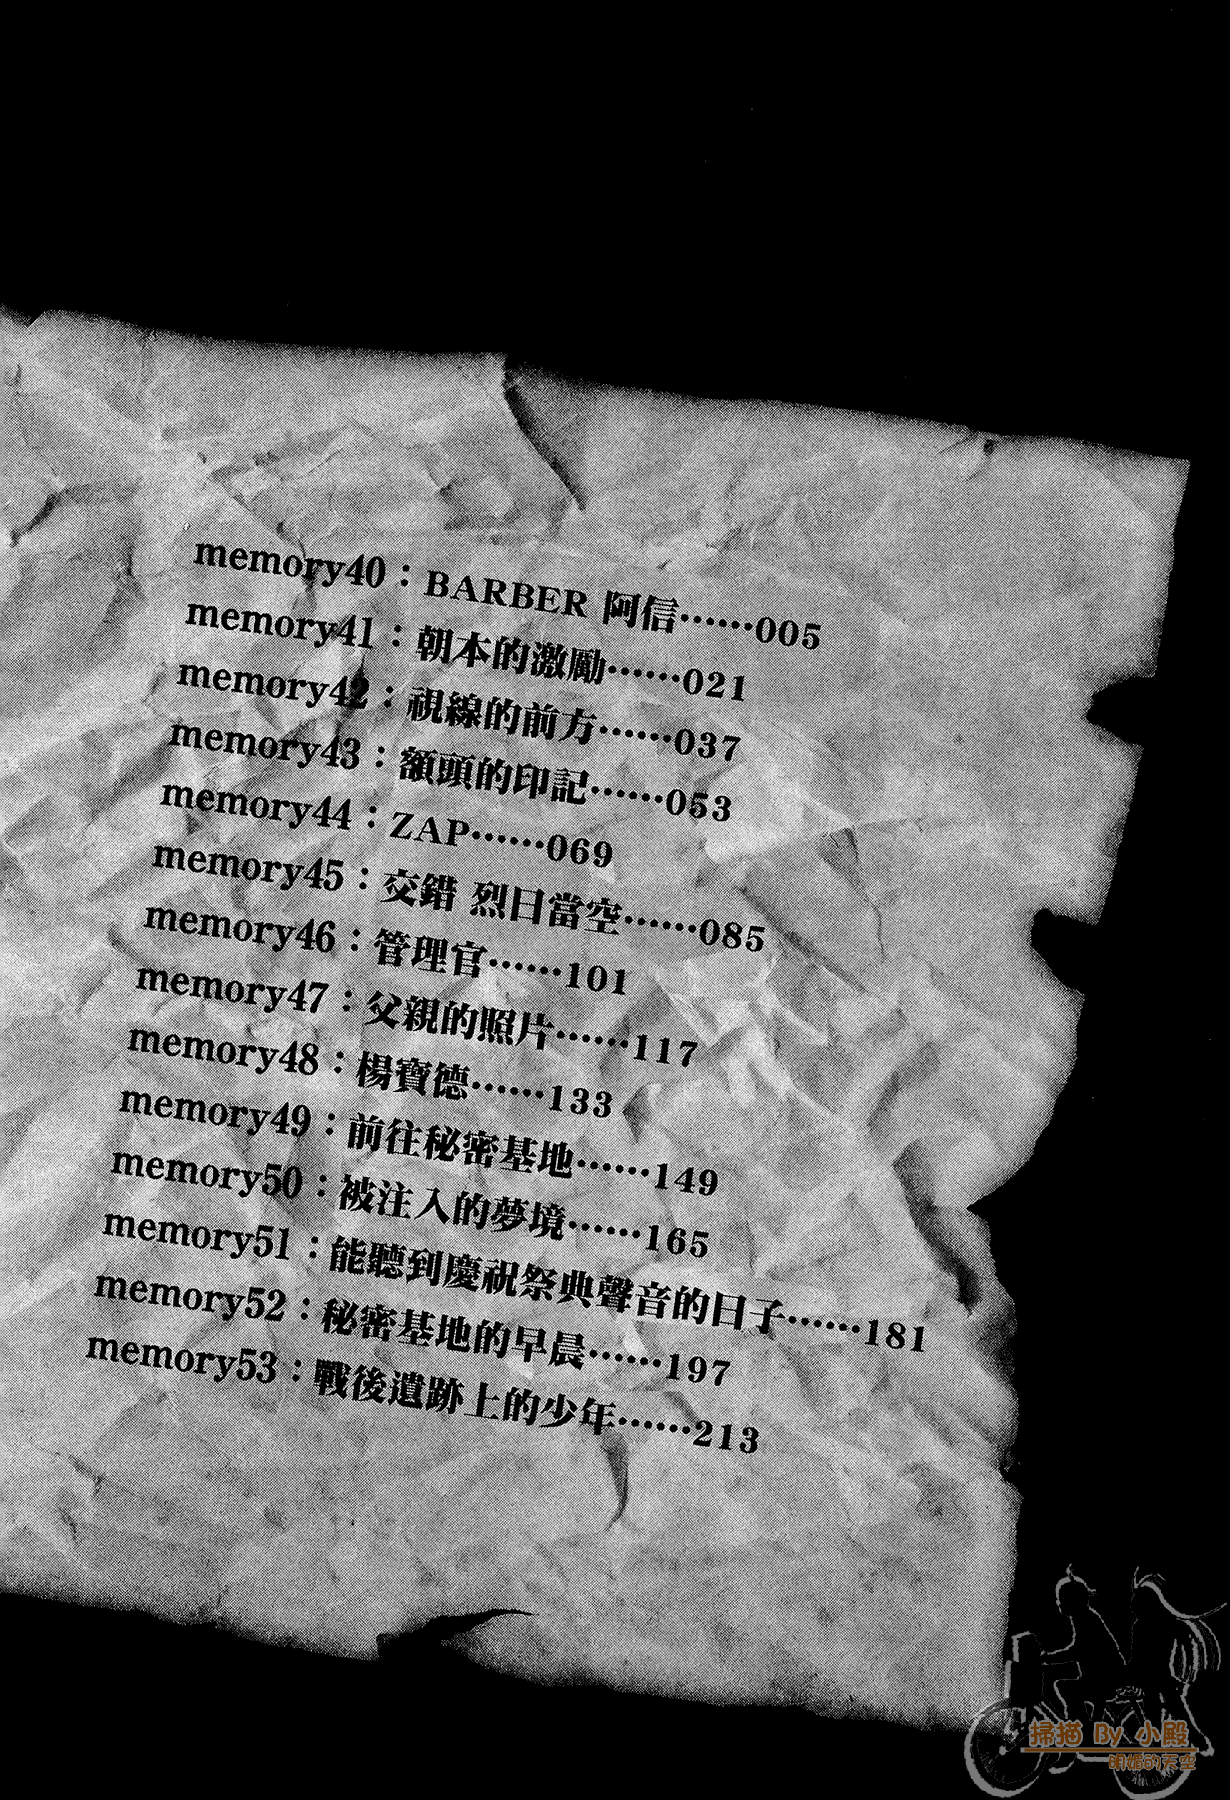 memory40：BARBER 阿信……005
memory41：朝本的激勵……021
memory42：視線的前方……037
memory43：額頭的印記……053
memory44：ZAP……069
memory45：交錯 烈日當空……085
memory46：管理官……101
memory47：父親的照片……117
memory48：楊寶德……133
memory49：前往秘密基地……149
memory50：被注入的夢境……165
memory51：能聽到慶祝祭典聲音的日子……181
memory52：秘密基地的早晨……197
memory53：戰後遺跡上的少年……213
掃描 By 小殿
明媚的天空